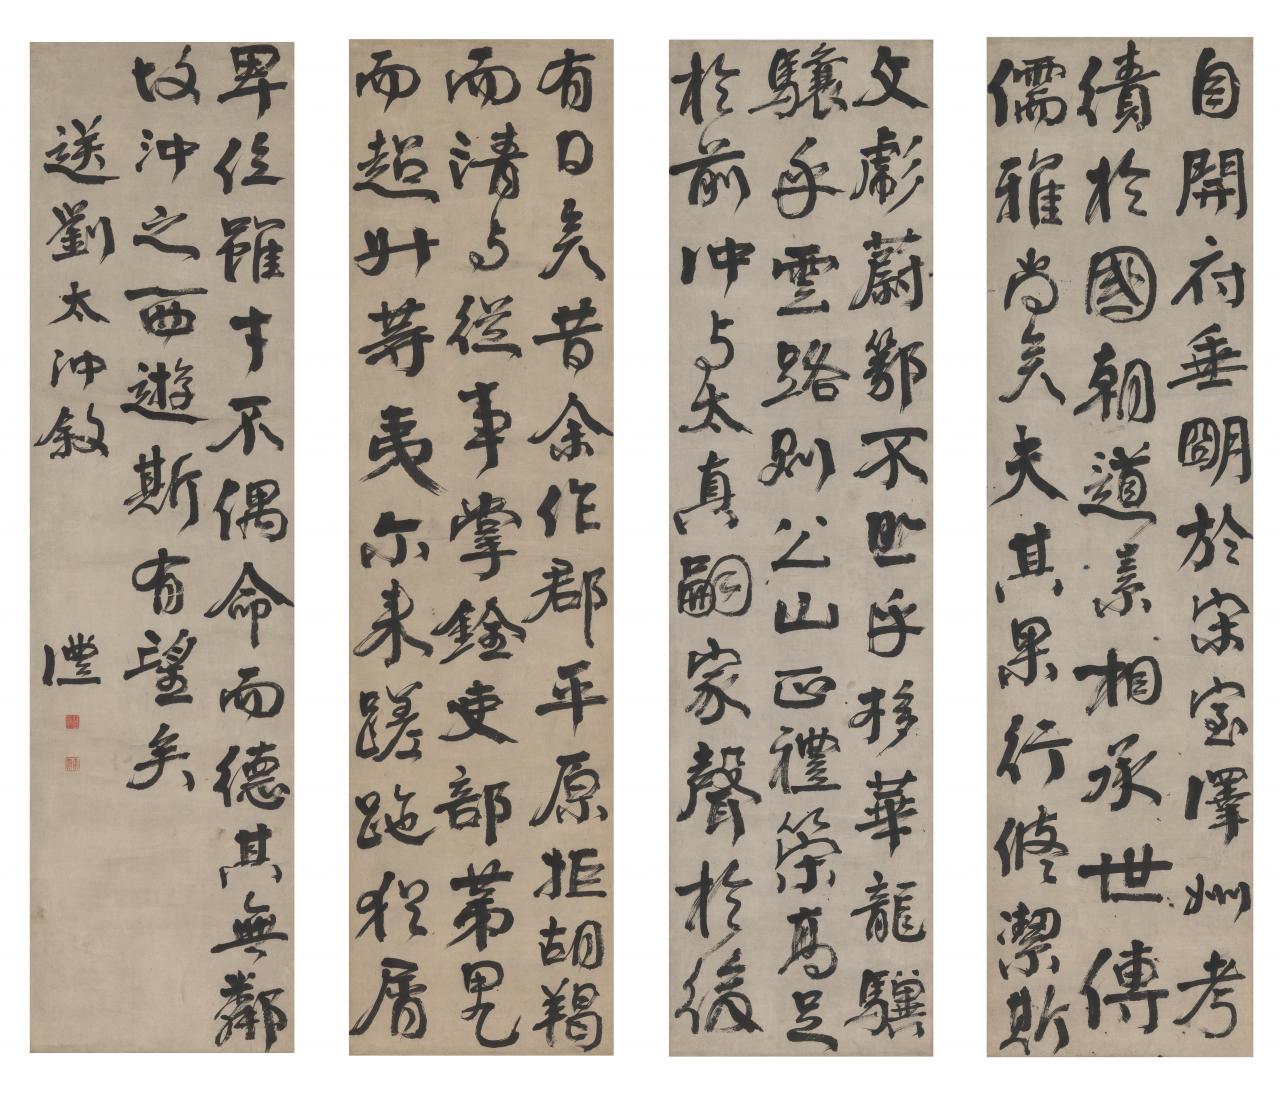 自開府垂朙於宋室澤州考
績於國朝道素相承世傳
儒雅尚矣夫其果行脩潔斯
文彪蔚鄂不乎移華龍驥
驤乎雲路則公山正禮策高足
於前沖与太真嗣家聲於後
有日矣昔余作郡平原拒胡羯
而清与從事掌銓吏部第甲
而超升等夷尔来蹉跎猶屑
卑位雖才不偶命而德其無鄰
故沖之西遊斯有望矣
送劉太沖敘
灃